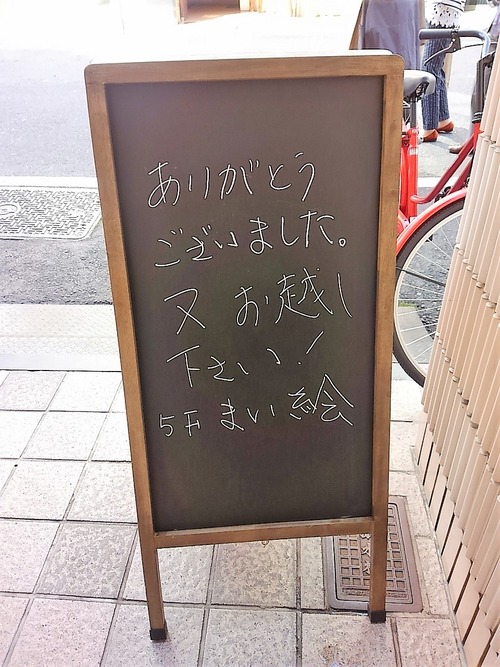 ありがとう
ございました。
又 お越し
下さい!
5F まい絵